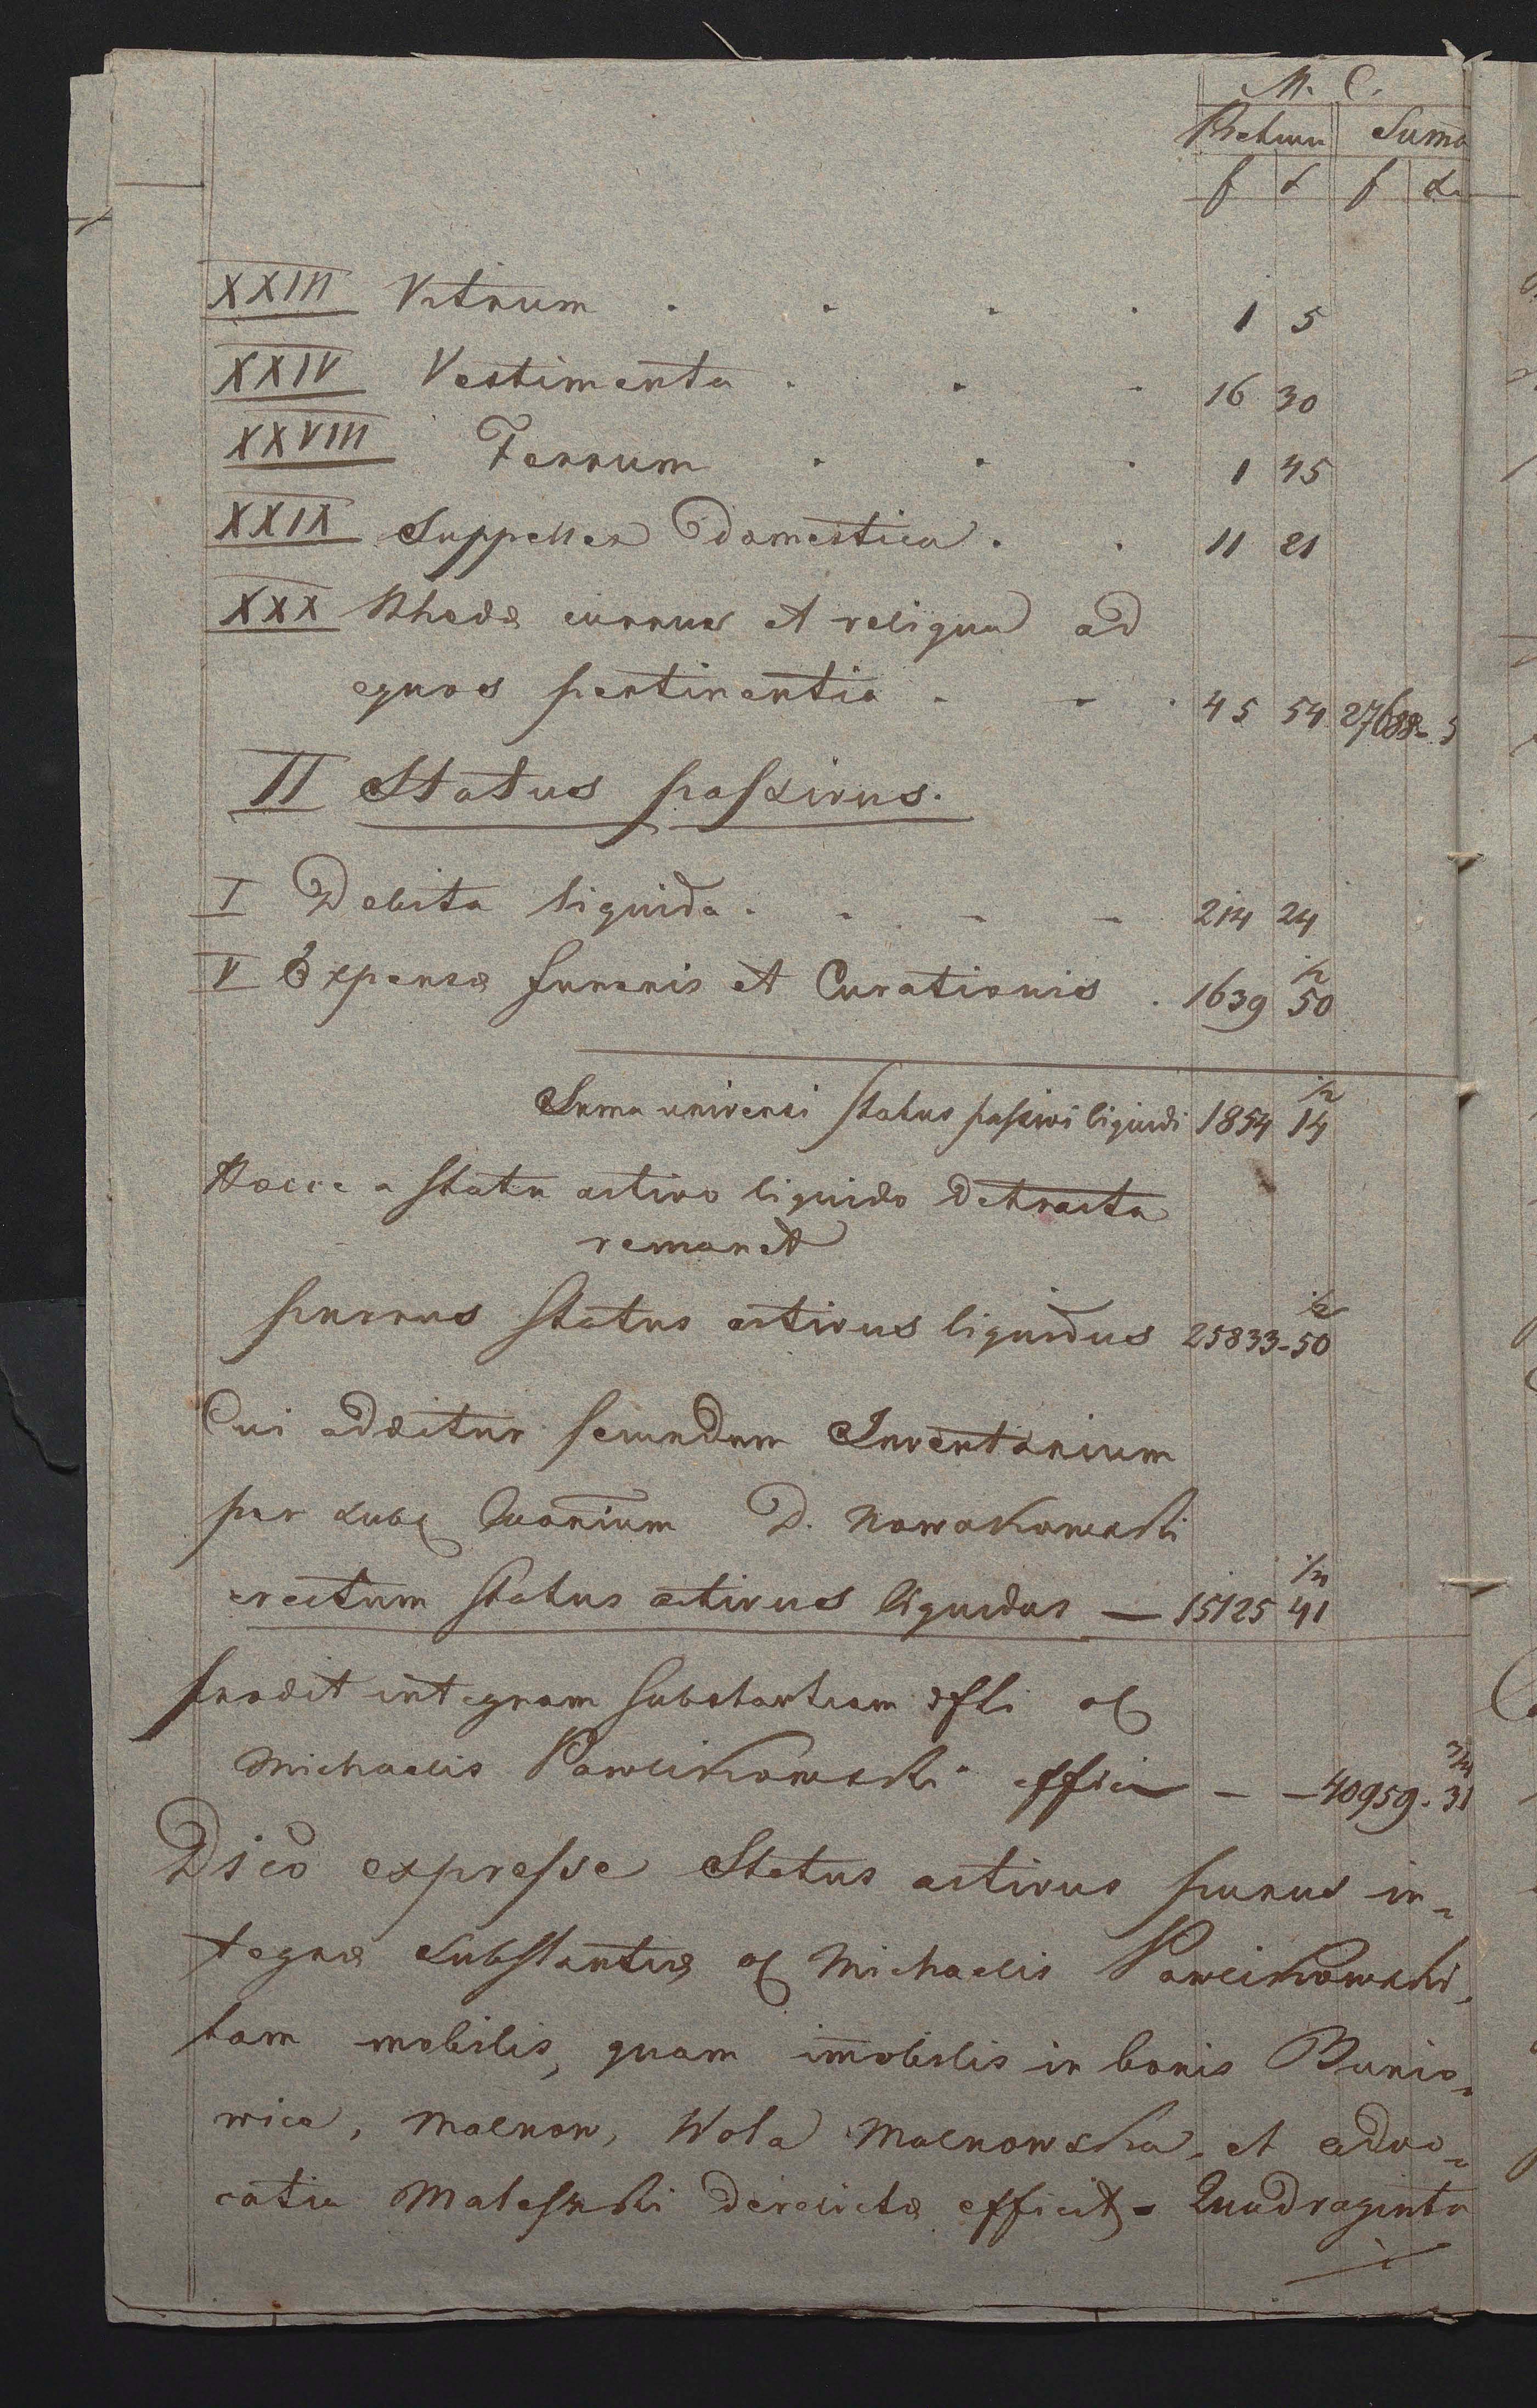 M. C.
Pretium Suma
f x f x
XXIII Vitrum . . . . 1 5
XXIV Vestimenta . . . 16 30
XXVIII Ferrum . . . 1 45
XXIX Suppellex Domestica . . 11 21
XXX Rhedæ currus et reliqua ad
equos pertinentia . . . 45 54 27688 - 5
II Status passivus.
I Debita liquida . . - - 214 24
V Expensæ funeris et Curationis . 1639 50 1/2
Suma universi status passivi liquidi 1854 14 1/2
Hacce a statu activo liquido detracta
remanet
purus status activus liquidus 25833 - 50 1/2
Cui additur secundum Inventarium
per D. Nowakowski
erectum status activus liquidus — 15125 41 1/4
prodit integram substantiam
Michaelis Pawlikowski - - 40959 . 31 3/4
Dico expresse Status activus purus in=
tegræ substantiæ Michaelis Pawlikowski,
tam mobilis, quam imobilis in bonis Bunio=
wice, Malnow, Wola Malnowska, et advo=
catia derelictæ efficit - Quadraginta